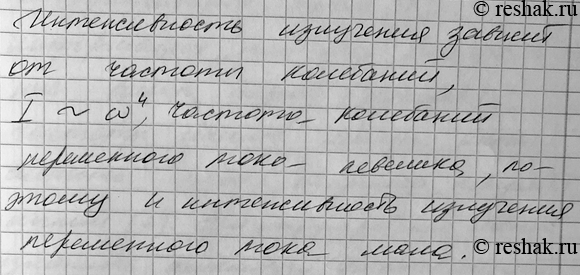 © reshak.ru
Интенсивность излучения зависит
от частоты колебаний,
I ~ ω⁴, частота колебаний
переменного тока невелика, по-
этому и интенсивность излучения
переменного тока мала.
© reshak.ru